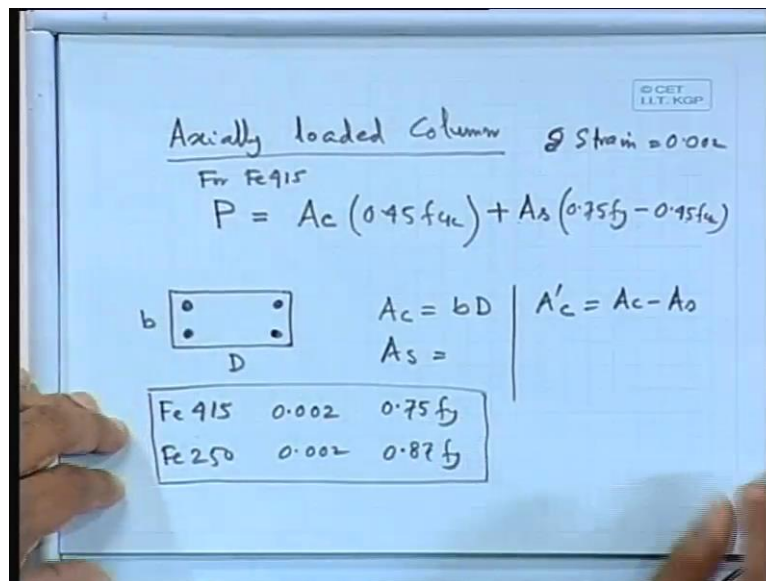 © CET
I.I.T. KGP
Axially loaded Column
Strain = 0.002
For Fe415
P = Ac (0.45 fck) + As (0.75fy - 0.45fck)
b
D
Ac = bD
A'c = Ac - As
As =
Fe 415 0.002 0.75 fy
Fe 250 0.002 0.87 fy